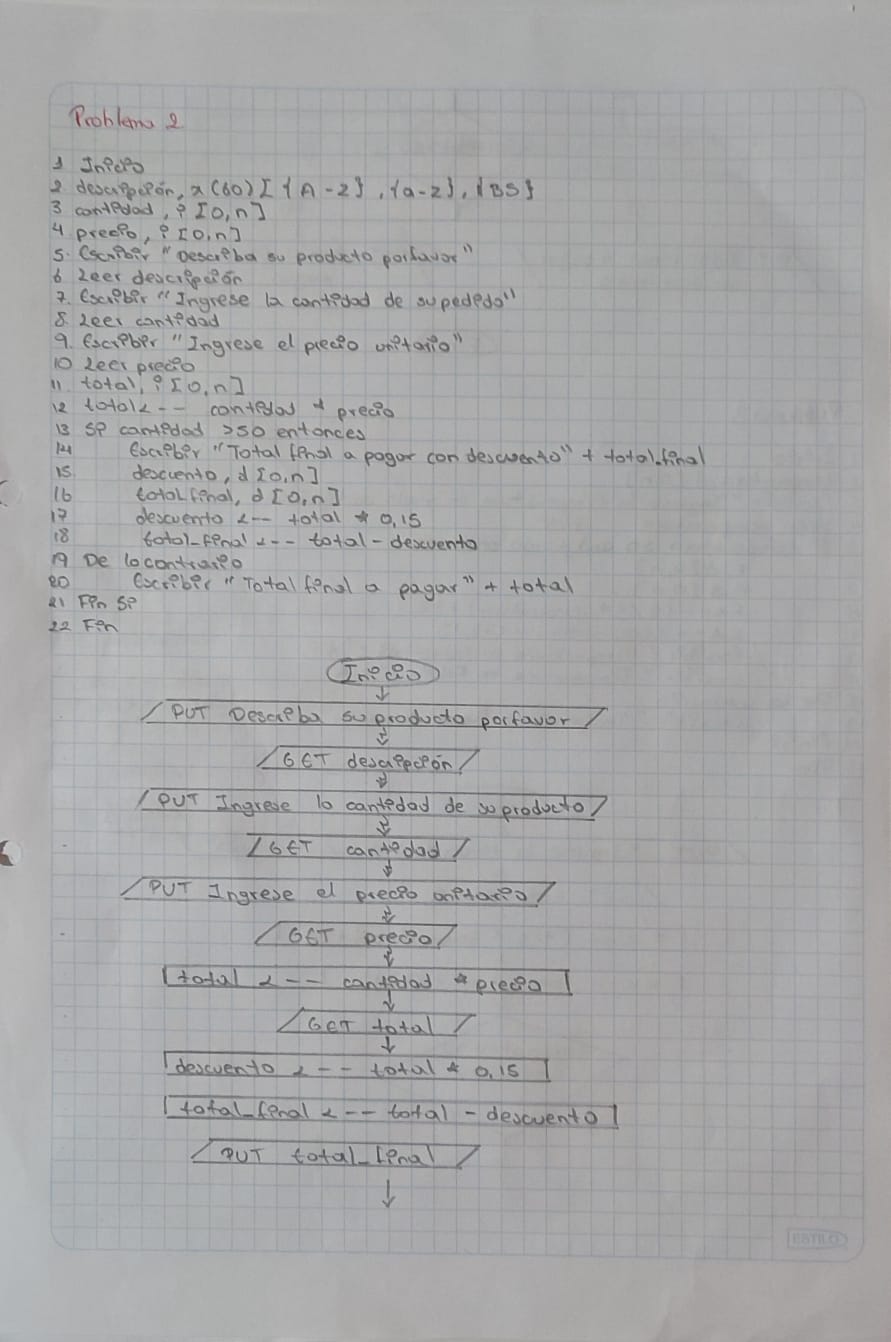 Problema 2
1 Inicio
2 descripción, x (60) [ {A - z} , {a-z}, {BS}
3 cantidad , i [0,n]
4 precio, i [0,n]
5. Escribir "Describa su producto porfavor"
6 Leer descripción
7. Escribir "Ingrese la cantidad de su pedido"
8. Leer cantidad
9. Escribir "Ingrese el precio unitario"
10 Leer precio
11 total, i [0,n]
12 total <-- cantidad * precio
13 Si cantidad >50 entonces
14 Escribir "Total final a pagar con descuento" + total_final
15 descuento, d [0,n]
16 total final, d [0,n]
17 descuento <-- total * 0,15
18 total_final <-- total - descuento
19 De lo contrario
20 Escribir "Total final a pagar" + total
21 Fin Si
22 Fin
Inicio
PUT Describa su producto porfavor
GET descripción
PUT Ingrese la cantidad de su producto
GET cantidad
PUT Ingrese el precio unitario
GET precio
total <-- cantidad * precio
GET total
descuento <-- total * 0,15
total_final <-- total - descuento
PUT total_final
ESTILO